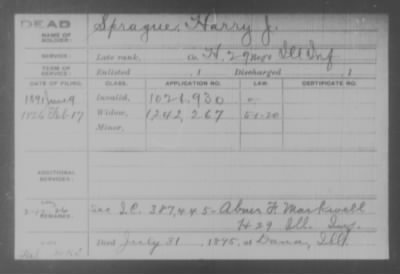 DEAD
NAME OF SOLDIER: Sprague, Harry J.
SERVICE: Late rank, Co. H, 29 Regt Ill Inf
TERM OF SERVICE: Enlisted , 1 Discharged , 1
DATE OF FILING. CLASS. APPLICATION NO. LAW. CERTIFICATE NO.
1891 June 9 Invalid, 1026,930
1926 Feb 17 Widow, 1242,267 5-1-20
Minor,
ADDITIONAL SERVICES:
REMARKS: See I.C. 387,445 - Abner F. Markwell
H 29 Ill. Inf.
Died July 31, 1895, at Dana, Ill.